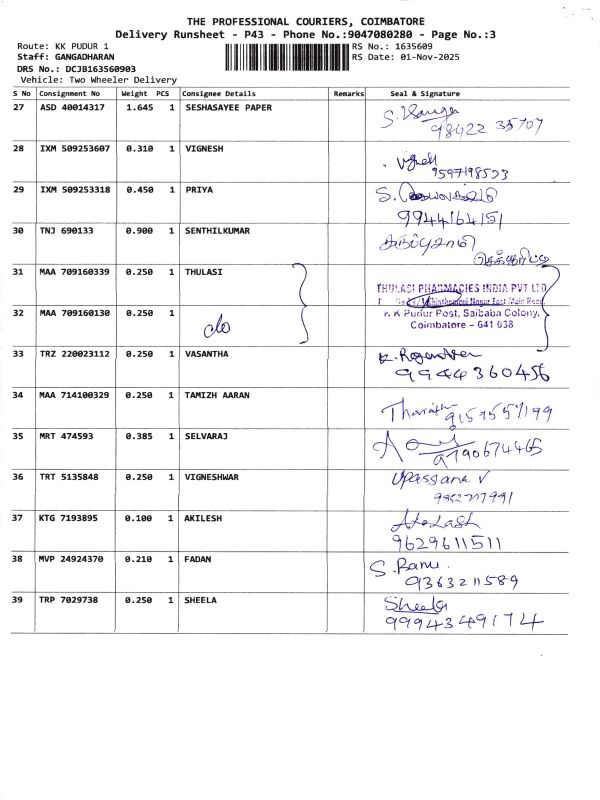 THE PROFESSIONAL COURIERS, COIMBATORE
Delivery Runsheet - P43 - Phone No.:9047080280 - Page No.:3
Route: KK PUDUR 1 RS No.: 1635609
Staff: GANGADHARAN RS Date: 01-Nov-2025
DRS No.: DCJB163560903
Vehicle: Two Wheeler Delivery
S No Consignment No Weight PCS Consignee Details Remarks Seal & Signature
27 ASD 40014317 1.645 1 SESHASAYEE PAPER
98422 35707
28 IXM 509253607 0.310 1 VIGNESH Vignesh
9597198523
29 IXM 509253318 0.450 1 PRIYA S.
9944164151
30 TNJ 690133 0.900 1 SENTHILKUMAR
31 MAA 709160339 0.250 1 THULASI
THULASI PHARMACIES INDIA PVT LTD
Chinthamani Nagar East Main Road
32 MAA 709160130 0.250 1 K K Pudur Post, Saibaba Colony,
Coimbatore - 641 038
33 TRZ 220023112 0.250 1 VASANTHA
9944360456
34 MAA 714100329 0.250 1 TAMIZH AARAN
35 MRT 474593 0.385 1 SELVARAJ
9790674465
36 TRT 5135848 0.250 1 VIGNESHWAR Upassana V
37 KTG 7193895 0.100 1 AKILESH
9629611511
38 MVP 24924370 0.210 1 FADAN S. Banu
9363211589
39 TRP 7029738 0.250 1 SHEELA Sheela
9994349174